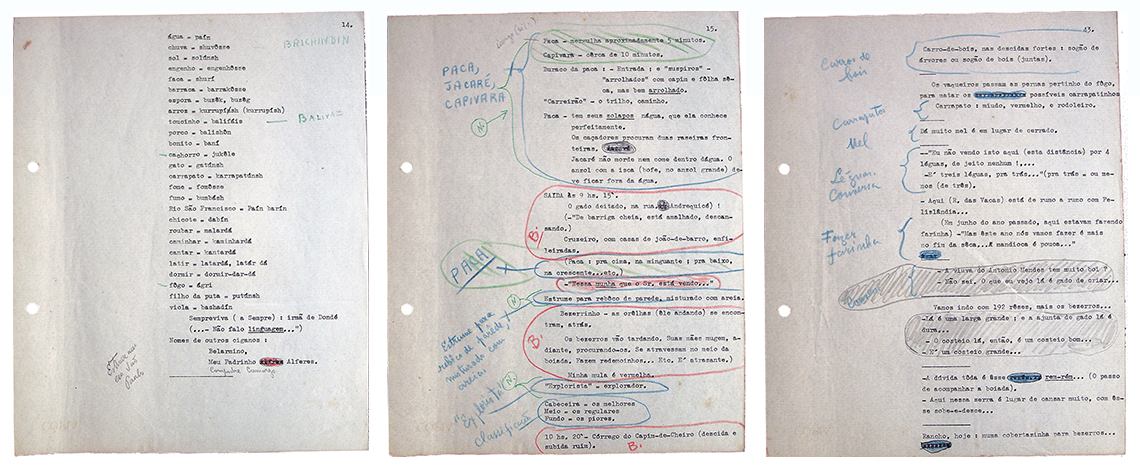 14.
água - paín
chuva - shuvôsse
sol - solúnsh
engenho - engenhôsse
faca - shurí
barraca - barrakôsse
espora - buzêk, buzêg
arros - kurrupíásh (kurrupiáh)
toucinho - balifáis
porco - balishón
bonito - baní
cachorro - jukêle
gato - gatúnsh
carrapato - karrapatúnsh
fone - fomôsse
fumo - bumbásh
Rio São Francisco - Paín barín
chicote - dabín
roubar - malardá
caminhar - kaminhardá
cantar - kantardá
latir - latardá, latár dá
dormir - dormir-dar-dá
fôgo - ágri
filho da puta - putúnsh
viola - bashadín
Sempreviva ( a Sempre) : irmã de Dondé
(...- Não falo linguagem...")
Nomes de outros ciganos :
Belarmino,
Meu Padrinho Alferes.
15.
Paca - mergulha aproximadamente 5 minutos.
Capivara - cêrca de 10 minutos.
PACA,
JACARÉ,
CAPIVARA
Buraco da paca : - Entrada ; e "suspiros" -
"arrolhados" com capim e fôlha sê-
ca, mas bem arrolhado.
"Carreirão" - o trilho, caminho.
Paca - tem seus solapos nágua, que ela conhece
perfeitamente.
Os caçadores procuram duas raseiras fron-
teiras.
Jacaré não morde nem come dentro dágua. O
anzol com a isca (bofe, no anzol grande) de-
ve ficar fora da água.
SAIDA às 9 hs. 15'.
O gado deitado, na rua, Andrequicé) !
(-"De barriga cheia, está amalhado, descan-
sando.)
Cruzeiro, com casas de joão-de-barro, enfi-
leiradas.
B:
PACA
(Paca : pra cima, na minguante ; pra baixo,
na crescente...etc.)
-"Nessa munha que o Sr. está vendo..."
Estrume para rebôco de parede, misturado com areia.
Estrume para
rebôco de parede,
misturado com
areia.
Bezerrinho - as orêlhas (êle andando) se encon-
tram, atrás.
Os bezerros vão tardando. Suas mães mugem, a-
diante, procurando-os. Se atravessam no meio da
boiada. Fazem redemoinhos... Etc. E' atrasante.)
B:
Minha mula é vermelha.
"Explorista" - explorador.
"Explorista"
Cabeceira - os melhores
Meio - os regulares
Fundo - os piores.
Classificação
10 hs. 20'- Córrego do Capim-de-Cheiro (descida e
subida ruim).
B.
43.
Carro-de-bois, nas descidas fortes : sogão de
árvores ou sogão de bois (juntas).
Carros de
bois
Os vaqueiros passam as pernas pertinho do fôgo,
para matar os possíveis carrapatinhos
Carrapato : miudo, vermelho, e rodoleiro.
Carrapatos
Dá muito mel é em lugar de cerrado.
Mel
-"Eu não vendo isto aqui (esta distância) por 4
léguas, de jeito nenhum !....
-E' três léguas, pra trás..."(pra trás - ou me-
nos (de três).
Léguas.
Conversa
- Aqui (R. das Vacas) está de rumo a rumo com Fe-
lizlândia...
(Em junho do ano passado, aqui estavam fazendo
farinha) -"Mas êste ano nós vamos fazer é mais
no fim da sêca...A mandioca é pouca..."
Fazer
farinha
- A viuva do Antonio Mendes tem muito boi ?
- Não sei. O que eu vejo lá é gado de criar...
Vamos indo com 192 rêses, mais os bezerros...
-Lá é uma larga grande ; e a ajunta de gado lá é
dura...
- O costeio lá, então, é um costeio bom...
- E' um costeio grande...
-A dívida tôda é êsse rem-rém... (O passo
de acompanhar a boiada).
- Aqui nessa serra é lugar de cansar muito, com ês-
se sobe-e-desce...
Rancho, hoje : numa cobertazinha para bezerros...